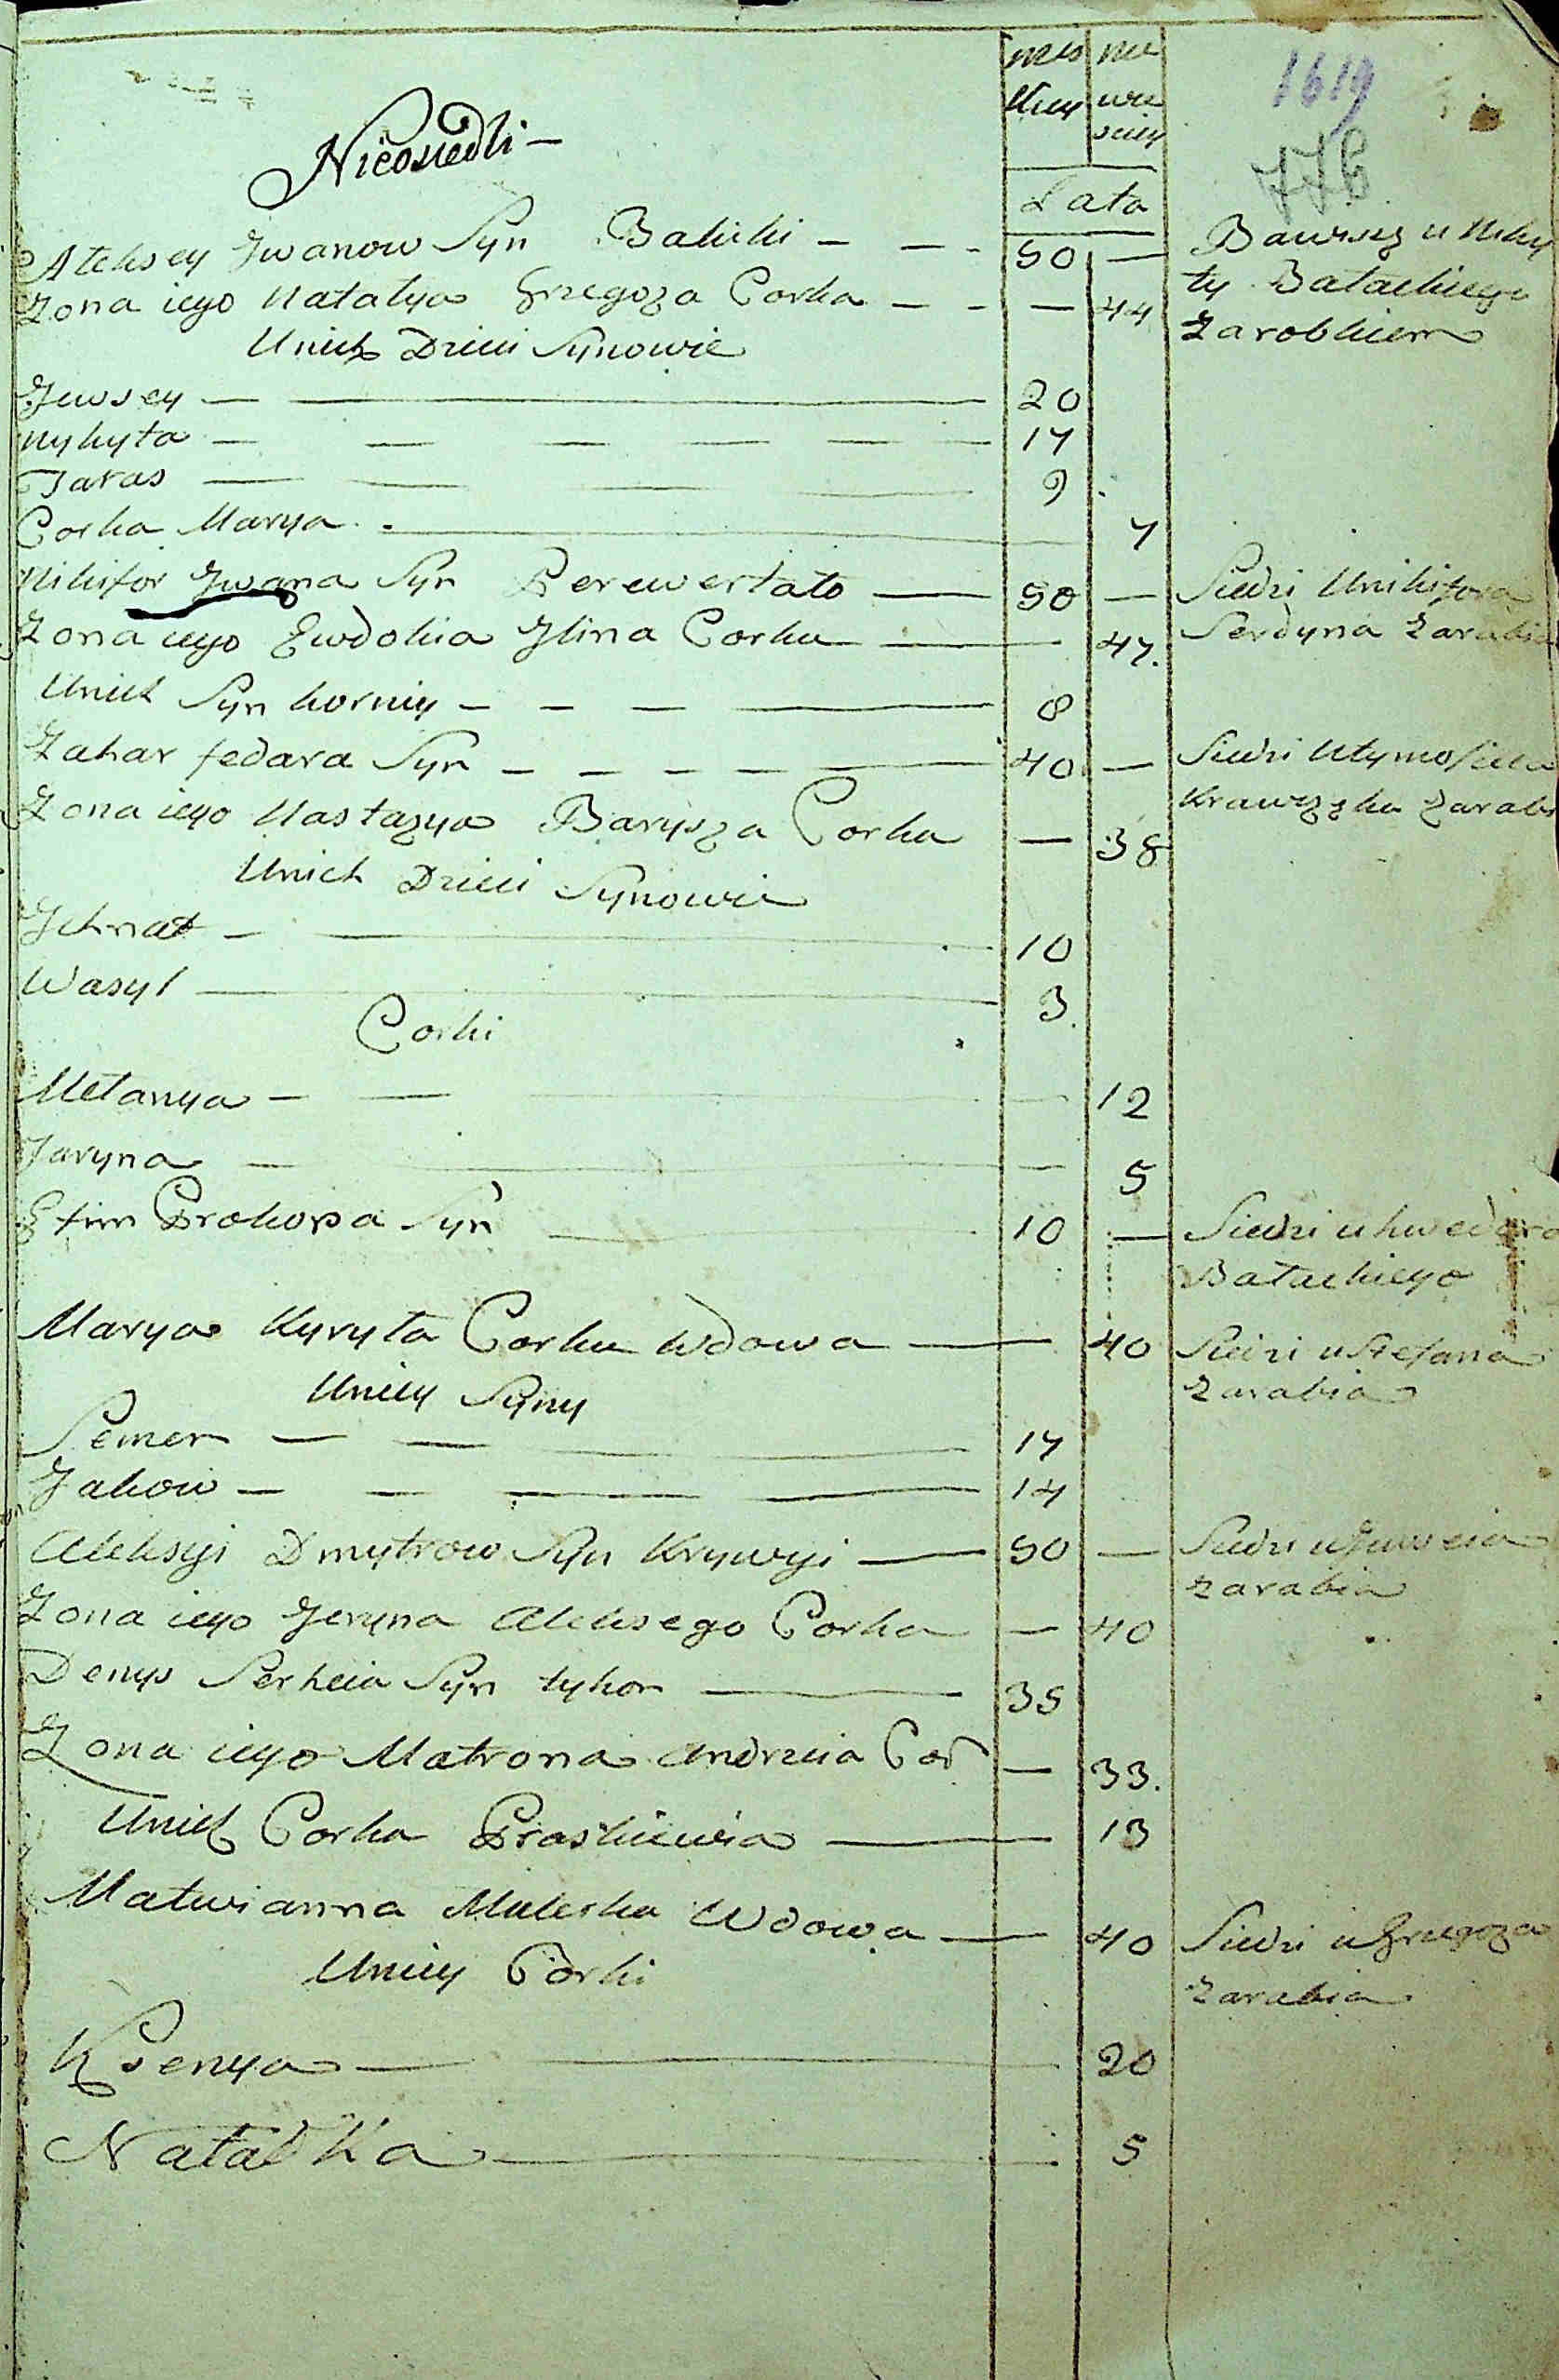 męs nie
kiey wie
sciey
1619
77b
Nieosiedli —
Lata
Aleksey Jwanow Syn Balicki — — - 50 — Bawisię u Niky
Zona iego Natalya Grzegoza Corka — - — 44 ty Batackiego
Unich Dzieci Synowie Zarobkiem
Jewsey — — 20
Nykyta — — — — — — 17
Taras — — — 9
Corka Marya - — 7
Nikifor Jwana Syn Perewertato — 50 — Siedzi Unikifora
Zona iego Ewdokia Jlina Corka — 47. Serdyna Zarabia
Unich Syn korniy — — — — 8
Zahar fedara Syn — — — — — 40 — Siedzi Utymofieia
Zona iego Nastazya Barysza Corka — 38 Krawczyka Zarab
Unich Dzieci Synowie
Jehnat — — 10
Wasyl — 3.
Corki
Melanya — — 12
Jaryna — — 5
Efim Prokopa Syn — 10 — Siedzi u hwedora
Batackiego
Marya Kyryła Corka wdowa — 40 Siedzi u Stefana
Uniey Syny Zarabia
Semen — — — 17
Jakow — — — — 14
Aleksyi Dmytrow Syn Krywyi — 50 — Siedzi u Jewseia
Zona iego Jeryna Aleksego Corka — 40 zarabia
Denys Serheia Syn tykon — 35
Zona iego Matrona Andrzeia Cor — 33.
Unich Corka Praskiewia — 13
Matwianna Malerka Wdowa — 40 Siedzi u Grzegoza
Uniey Corki Zarabia
Ksenya — — 20
Natalka — 5